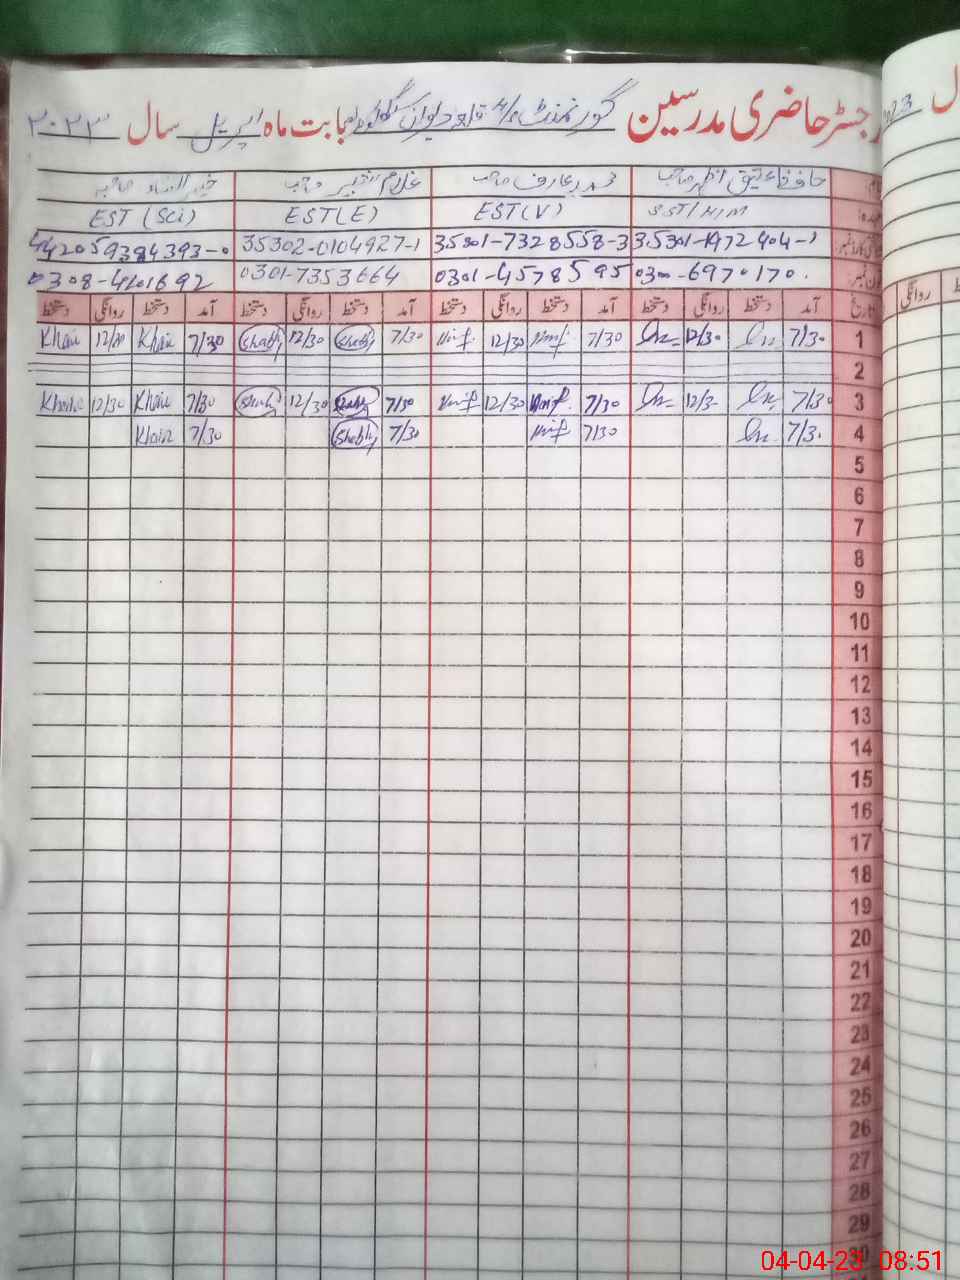 رجسٹر حاضری مدرسین گورنمنٹ بابت ماہ اپریل سال ۲۰۲۳
حافظ عتیق اظہر صاحب محمد عارف صاحب غلام شبیر صاحب خیر النساء صاحبہ
SST/H/M EST(V) EST(E) EST(Sci)
35301-1972404-1 35301-7328558-3 35302-0104927-1
0300-6970170 0301-4578595 0301-7353664 0308-4101692
تاریخ آمد دستخط روانگی دستخط آمد دستخط روانگی دستخط آمد دستخط روانگی دستخط آمد دستخط روانگی دستخط
1 7/30 12/30 7/30 12/30 7/30 Shabbir 12/30 Shabbir 7/30 Khair 12/30 Khair
2
3 7/30 12/30 7/30 12/30 7/30 12/30 7/30 Khair 12/30 Khair
4 7/30 7/30 7/30 Shabbir 7/30 Khair
5
6
7
8
9
10
11
12
13
14
15
16
17
18
19
20
21
22
23
24
25
26
27
28
29
30
2023
روانگی
04-04-23 08:51